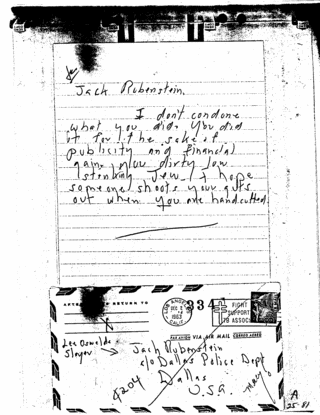 Jack Rubenstein.
I don't condone
what you did. You did
it for the sake of
publicity and financial
gain, you dirty low
stinking Jew. I hope
someone shoots your guts
out when you are handcuffed.
AFTER RETURN TO
LOS ANGELES
CALIF
1963
334
FIGHT
SUPPORT
VIA AIR MAIL
Lee Oswalds
Slayer
Jack Rubenstein
c/o Dallas Police Dept
Dallas
U.S.A.
4204
A
25-81